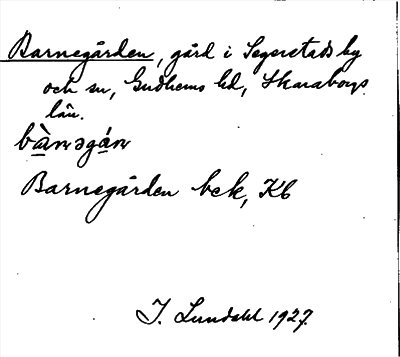 Barnegården, gård i Segerstads by
och sn, Gudhems hd, Skaraborgs
län.
bànəgán
Barnegården bek, Kb
I. Lundahl 1927.